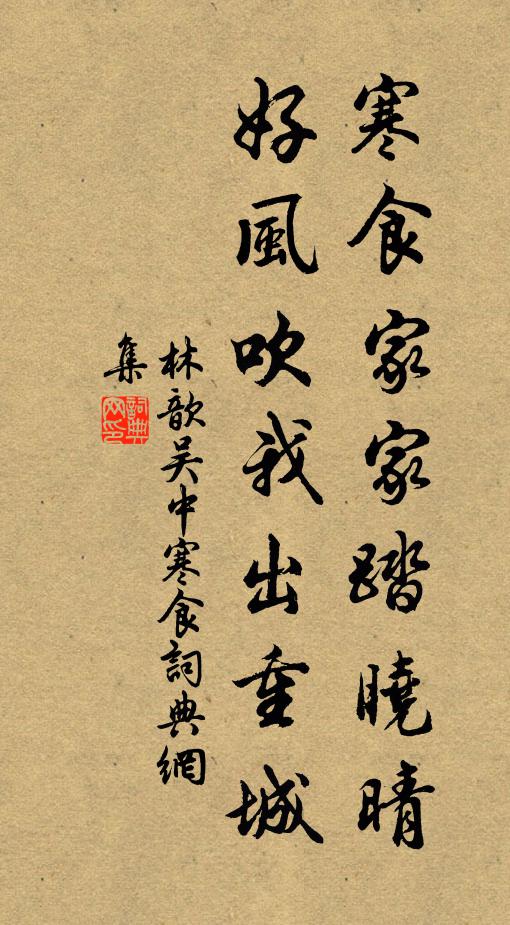 寒食家家踏曉晴
好風吹我出重城
林歆吳中寒食詞典網
集
詞典
网印